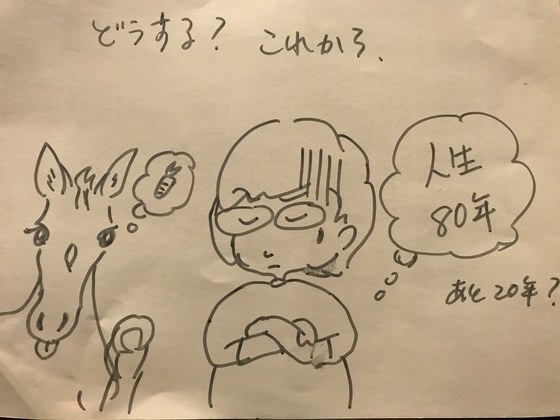 どうする? これから、
人生
80年
あと20年?